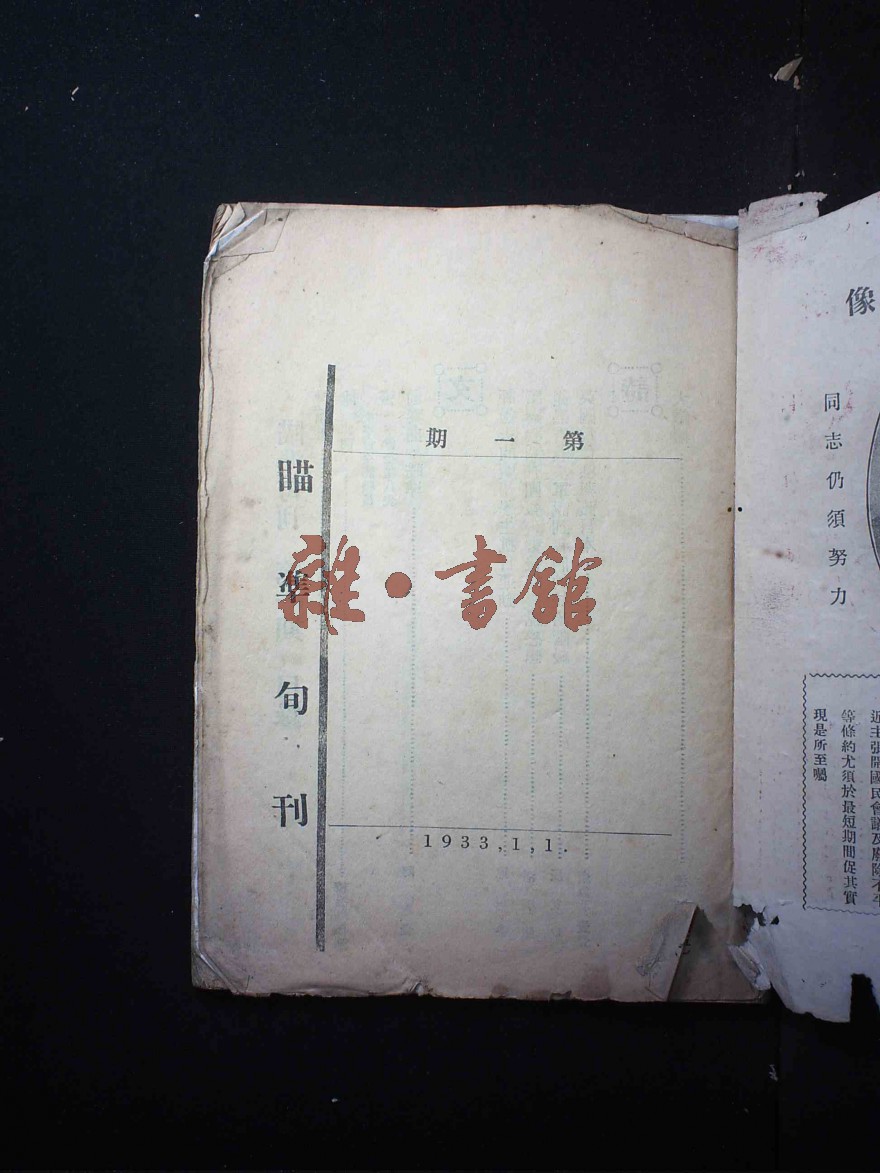 像
同志仍須努力
近主張開國民會議及廢除不平
等條約尤須於最短期間促其實
現是所至囑
第一期
瞄準旬刊
1933,1,1.
雜·書館
詩
文